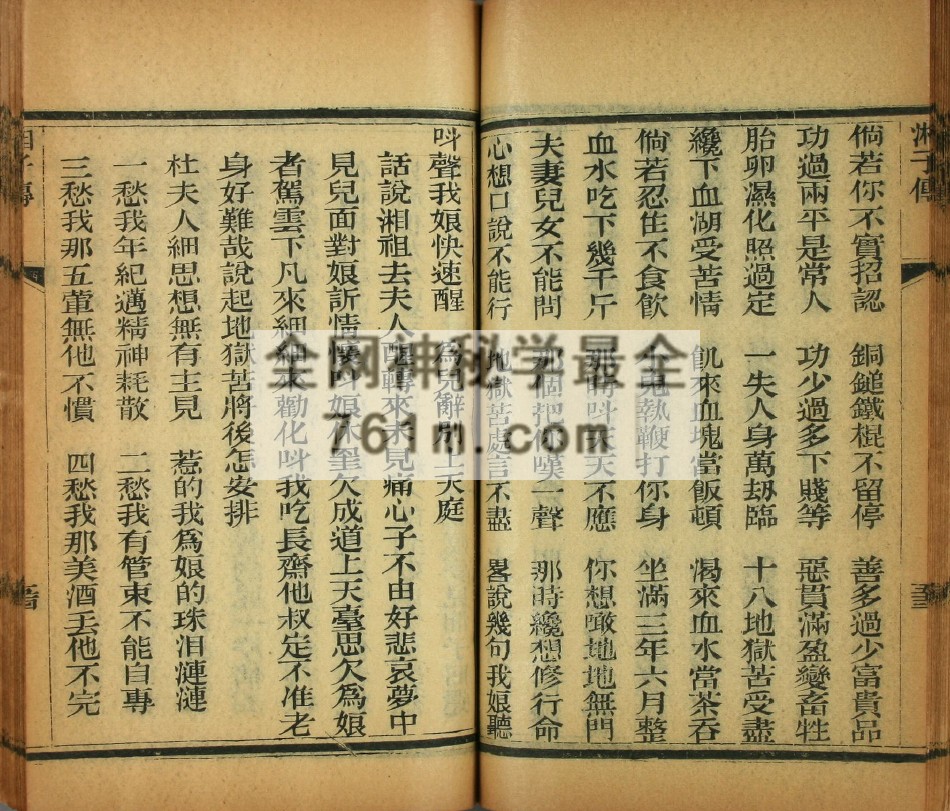 湘子傳
倘若你不實招認 銅鎚鐵棍不留停 善多過少富貴品
功過兩平是常人 功少過多下賤等 惡貫滿盈變畜牲
胎卵濕化照過定 一失人身萬劫臨 十八地獄苦受盡
纔下血湖受苦情 飢來血塊當飯頓 渴來血水當茶吞
倘若忍住不食飲 鬼執鞭打你身 坐滿三年六月整
血水吃下幾千斤 那時呌天天不應 你想噉地地無門
夫妻兒女不能問 那個把你嘆一聲 那時纔想修行命
心想口說不能行 地獄苦處言不盡 畧說幾句我娘聽
呌聲我娘快速醒 為兒辭別上天庭
話說湘祖去夫人醒轉來未見痛心子不由好悲哀夢中
見兒面對娘訴情懷呌娘休呆欠成道上天臺思欠為娘
者駕雲下凡來細細來勸化呌我吃長齋他叔定不准老
身好難哉說起地獄苦將後怎安排
杜夫人細思想無有主見 惹的我為娘的珠泪漣漣
一愁我年紀邁精神耗散 二愁我有管束不能自專
三愁我那五葷無他不慣 四愁我那美酒去他不完
子傳
全网神秘学最全
761m.com